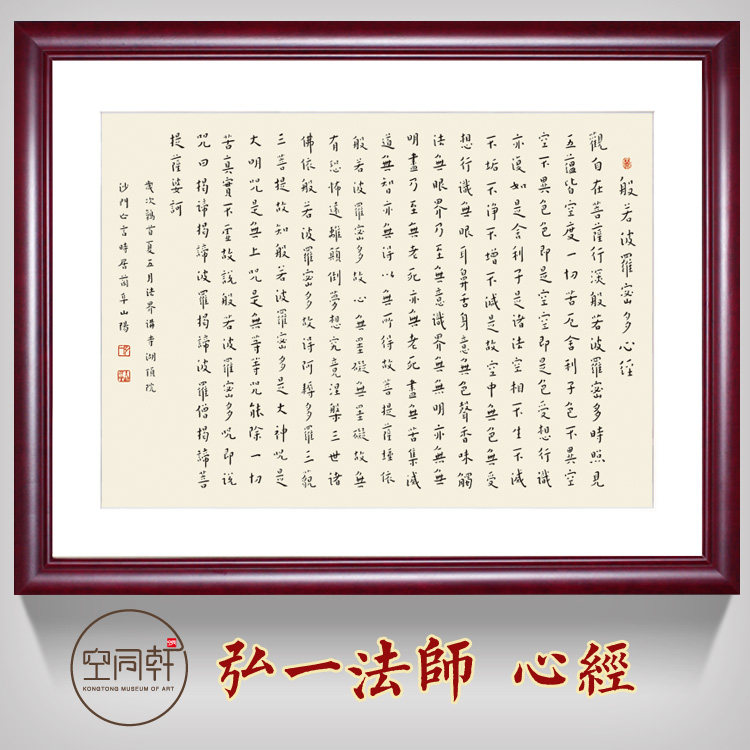 般若波羅密多心經
觀自在菩薩行深般若波羅密多時照見
五蘊皆空度一切苦厄舍利子色不異空
空不異色色即是空空即是色受想行識
亦復如是舍利子是諸法空相不生不滅
不垢不淨不增不減是故空中無色無受
想行識無眼耳鼻舌身意無色聲香味觸
法無眼界乃至無意識界無無明亦無無
明盡乃至無老死亦無老死盡無苦集滅
道無智亦無得以無所得故菩提薩埵依
般若波羅密多故心無罣礙無罣礙故無
有恐怖遠離顛倒夢想究竟涅槃三世諸
佛依般若波羅密多故得阿耨多羅三藐
三菩提故知般若波羅密多是大神咒是
大明咒是無上咒是無等等咒能除一切
苦真實不虛故說般若波羅密多咒即說
咒曰揭諦揭諦波羅揭諦波羅僧揭諦菩
提薩婆訶
歲次鶉首夏五月法界講寺湖頂院
沙門亡言時居菌阜山陽
空同軒
KONGTONG MUSEUM OF ART
弘一法師 心經